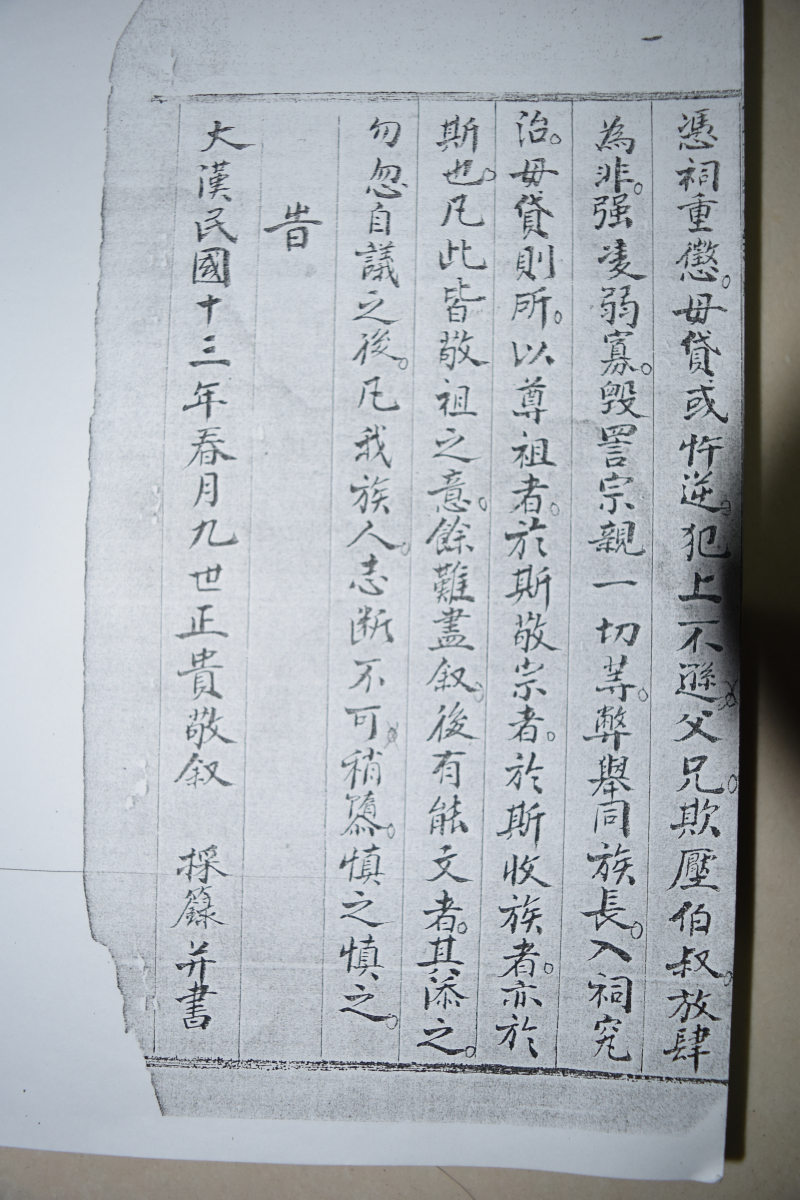 憑祠重懲。毋貸或忤逆。犯上不遜。父兄。欺壓伯叔。放肆
為非。强凌弱寡。毀詈宗親一切等。弊舉同族長。入祠究
治。毋貸則所。以尊祖者。於斯敬宗者。於斯收族者。亦於
斯也。凡此皆敬祖之意。餘難盡叙。後有能文者。其添之。
勿忽自議之後。凡我族人。志断不可。稍隳。慎之慎之。
告
大漢民國十三年春月九世正貴敬叙 採錄并書